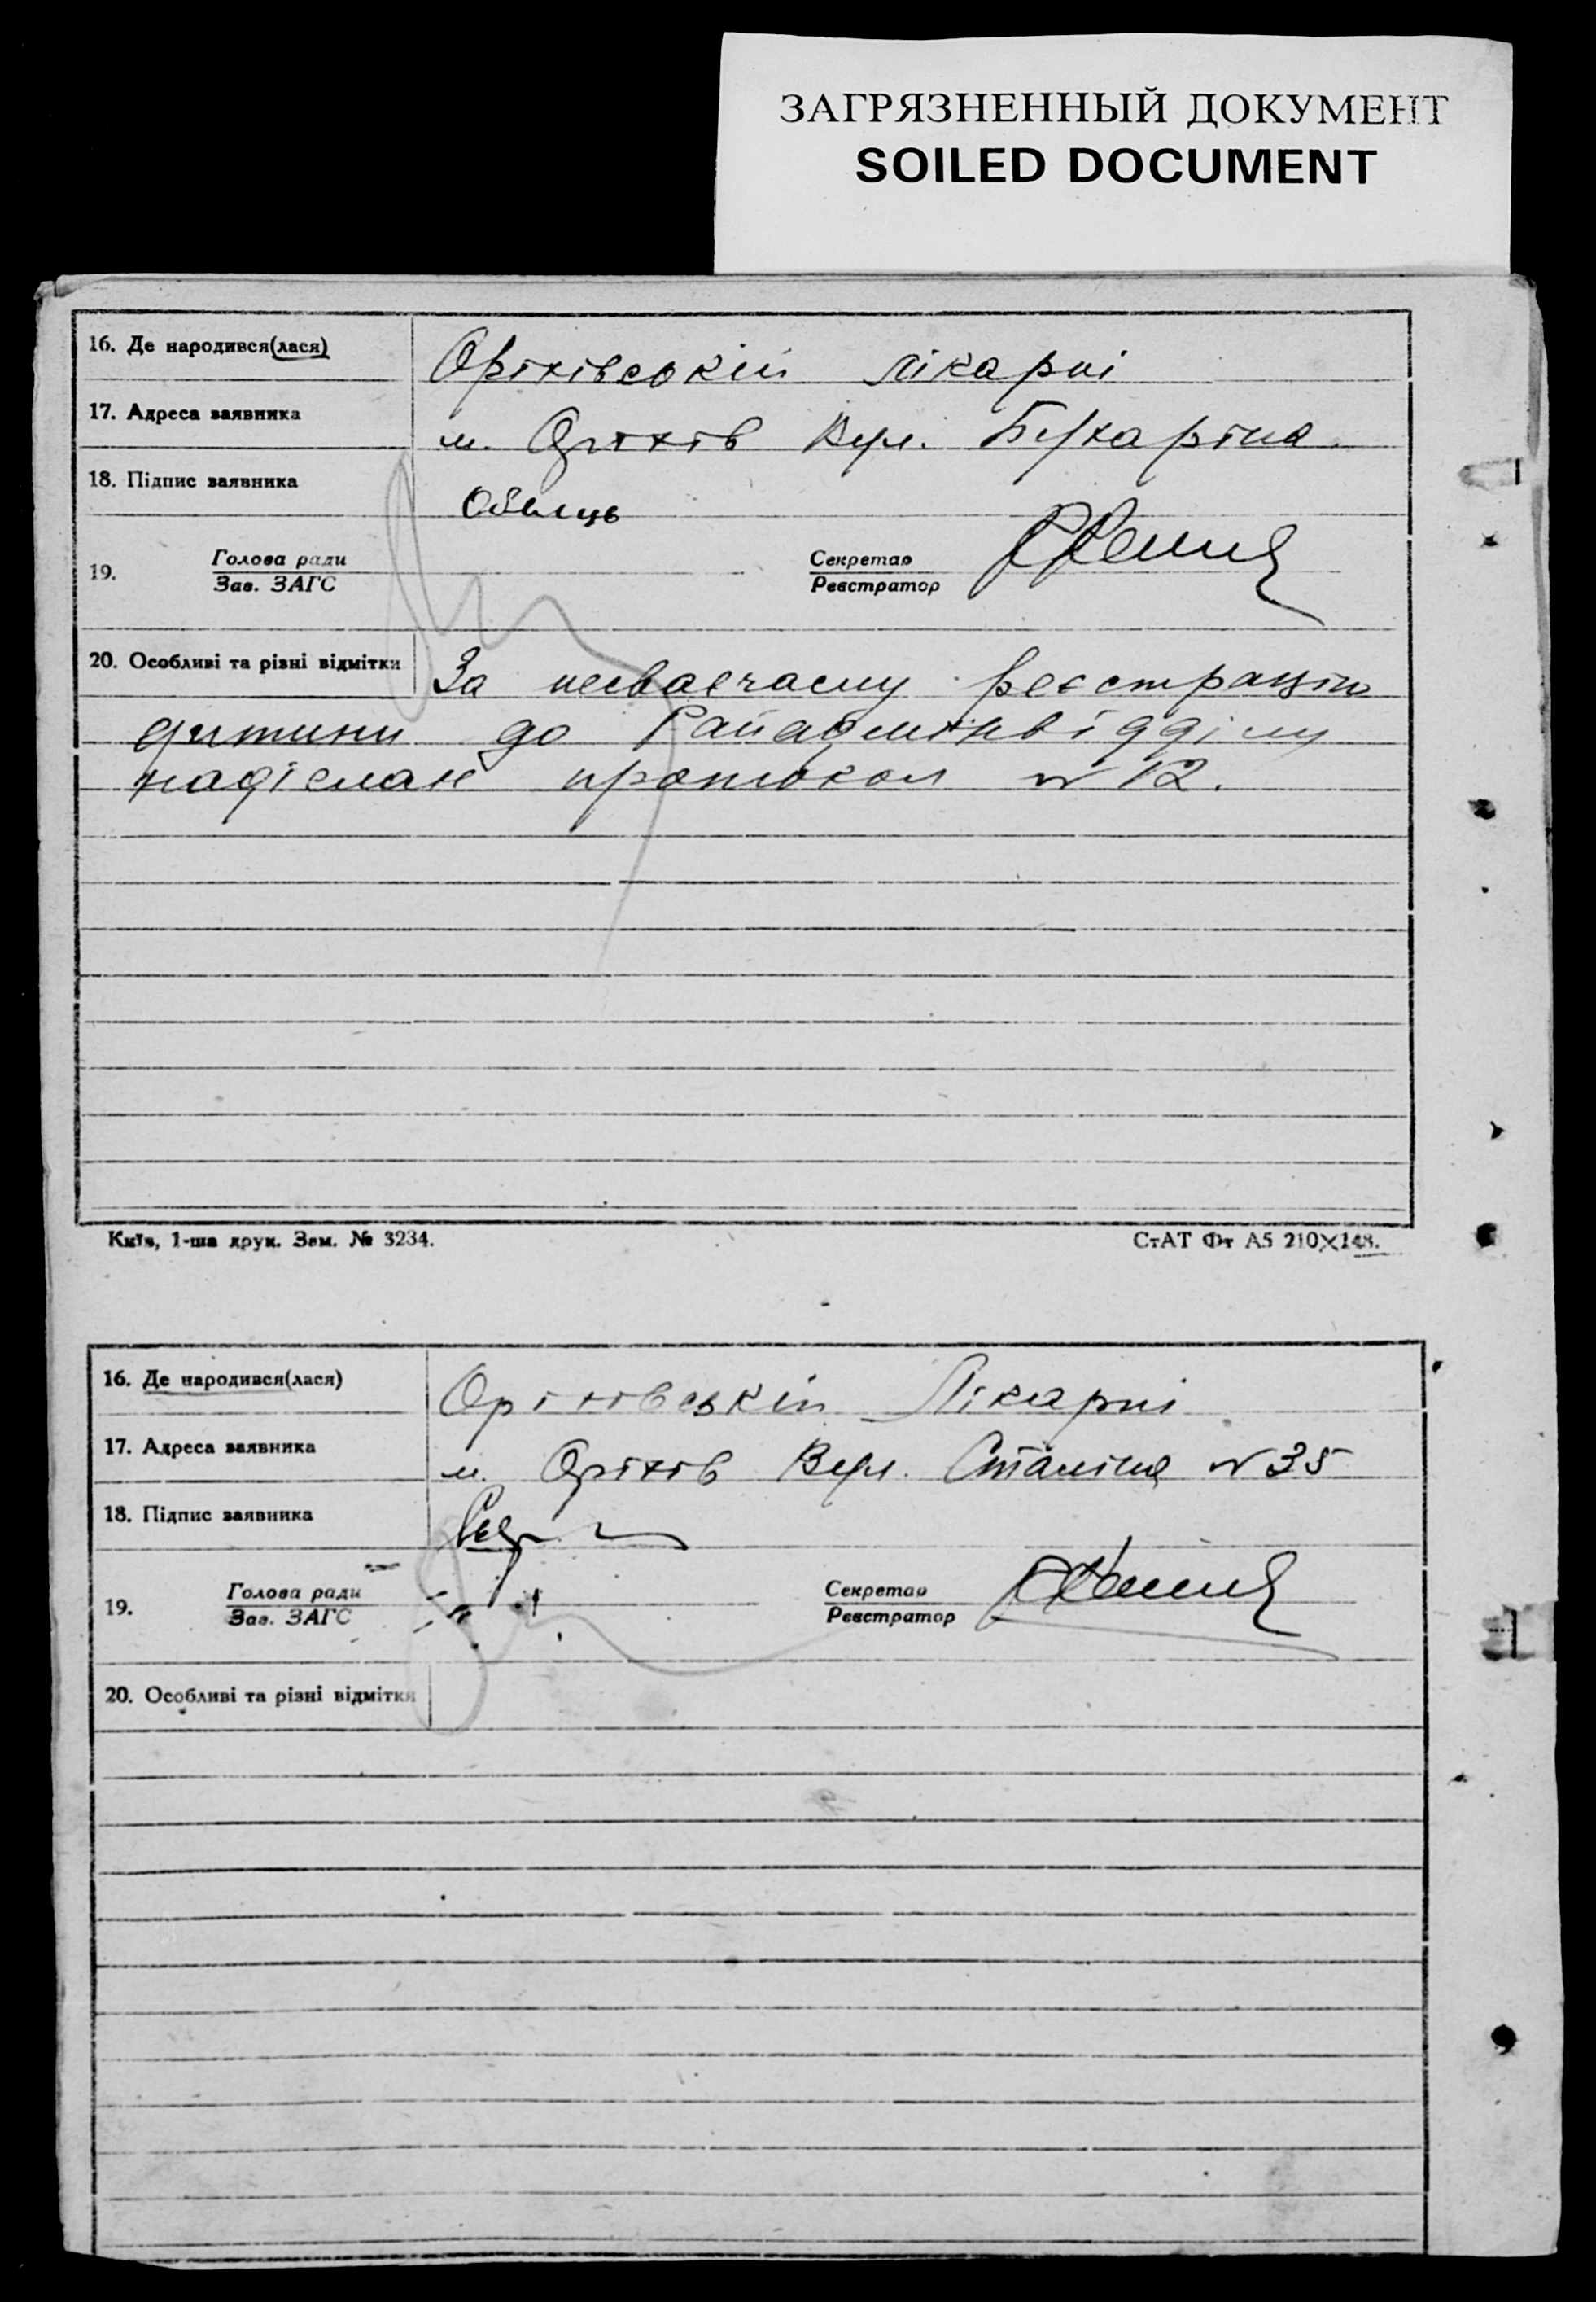 ЗАГРЯЗНЕННЫЙ ДОКУМЕНТ
SOILED DOCUMENT
16. Де народився(лася) Оріхівській лікарні
17. Адреса заявника м. Оріхів Вул. Бухаріна.
18. Підпис заявника
19. Голова ради Секретар
Зав. ЗАГС Реєстратор
20. Особливі та різні відмітки За несваєчасну реєстрацію
дитини до Райадмінвідділу
надіслан протокол № 12.
Київ, 1-ша друк. Зам. № 3234. СтАТ Фт А5 210×148.
16. Де народився(лася) Оріхівській Лікарні
17. Адреса заявника м. Оріхів Вул. Сталіна № 35
18. Підпис заявника
19. Голова ради Секретар
Зав. ЗАГС Реєстратор
20. Особливі та різні відмітки